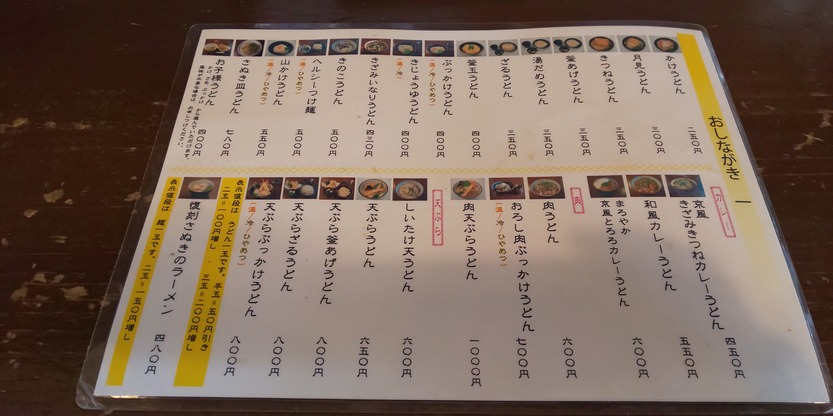 おしながき 一
かけうどん 二五〇円
月見うどん 三〇〇円
きつねうどん 三五〇円
釜あげうどん 三五〇円
湯だめうどん 三五〇円
ざるうどん 三五〇円
釜玉うどん 四〇〇円
ぶっかけうどん 四〇〇円
(温/冷/ひやあつ)
きじょうゆうどん 四〇〇円
(温/冷)
きざみいなりうどん 四三〇円
きのこうどん 五〇〇円
ヘルシーつけ麺 五〇〇円
(温/冷/ひやあつ)
山かけうどん 五五〇円
(温/冷/ひやあつ)
さぬき皿うどん 七八〇円
お子様うどん 四〇〇円
カレー
京風
きざみきつねカレーうどん 四五〇円
和風カレーうどん 五五〇円
まろやか
京風とろろカレーうどん 六〇〇円
肉
肉うどん 六〇〇円
おろし肉ぶっかけうどん 七〇〇円
(温/冷/ひやあつ)
肉天ぷらうどん 一〇〇〇円
天ぷら
しいたけ天うどん 六〇〇円
天ぷらうどん 六五〇円
天ぷら釜あげうどん 八〇〇円
天ぷらざるうどん 八〇〇円
天ぷらぶっかけうどん 八〇〇円
(温/冷/ひやあつ)
表示値段は うどん一玉です。半玉=五〇円引き
二玉=一〇〇円増し 三玉=二〇〇円増し
復刻さぬきのラーメン 四八〇円
表示値段は 麺一玉です。二玉=一五〇円増し